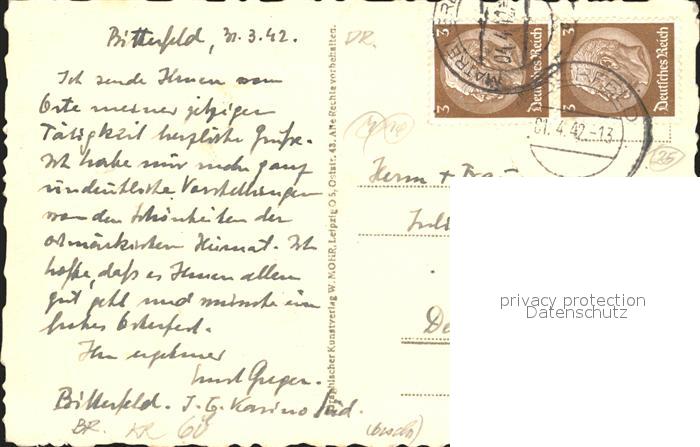 Bitterfeld, 31.3.42.
Ich sende Ihnen vom
Orte meiner jetzigen
Tätigkeit herzliche Grüße.
Ich habe nur noch ganz
undeutliche Vorstellungen
von den Schönheiten der
ostmärkischen Heimat. Ich
hoffe, daß es Ihnen allen
gut geht und wünsche ein
frohes Osterfest.
Ihr ergebener
Ernst
Bitterfeld. I. G. Kasino Süd.
BR. KR 60
Graphischer Kunstverlag W. MOHR, Leipzig O 5, Oststr. 43. Alle Rechte vorbehalten.
DR.
3 Deutsches Reich
3 Deutsches Reich
04.4.42
01.4.42-13
25
Herrn + Frau
privacy protection
Datenschutz